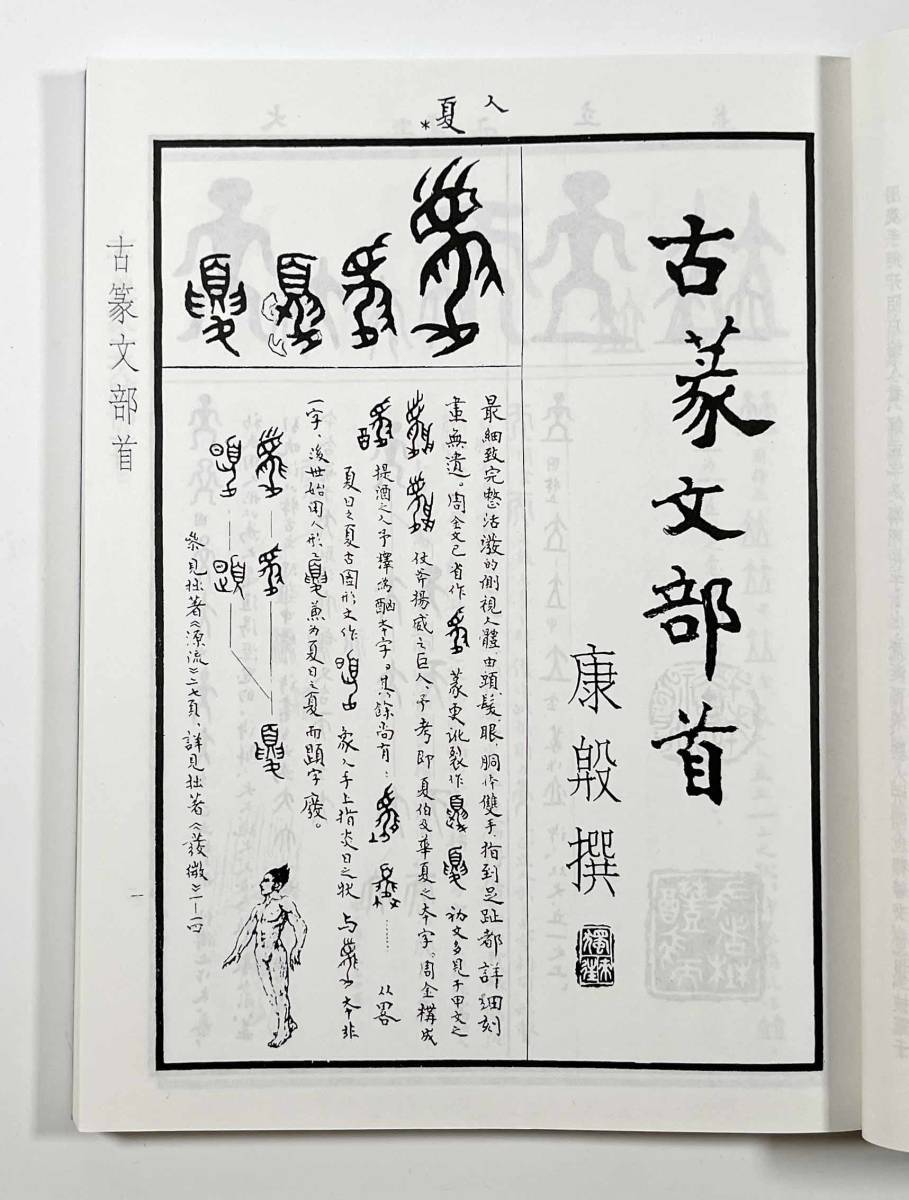 人
夏*
古篆文部首
康殷撰
最細致完整活潑的側視人體，由頭、髮、眼、胴体雙手、指到足趾都詳細刻
畫無遺。周金文已省作 篆更訛裂作 初文多見于甲文之
仗斧揚威之巨人，予考即夏伯及華夏之本字。周金構成
提酒之人予擇為酗本字。其餘尚有： …… 从畧
夏日之夏古圖形文作 象人手上指炎日之狀 与 本非
一字，後世始用人形之 兼為夏日之夏 而 字廢。
參見拙著《源流》二七頁，詳見拙著《發微》一—四
古篆文部首
一